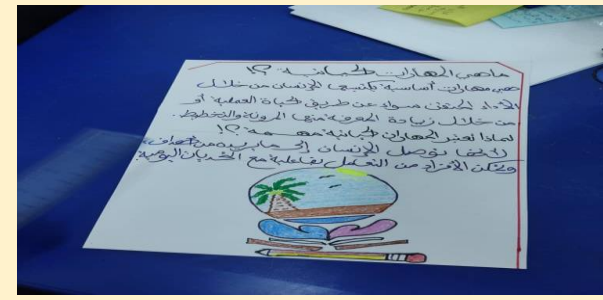 ما هي المهارات الحياتية ؟!
هي مهارات أساسية يكتسبها الإنسان من خلال
الأداء المتقن سواء عن طريق الحياة العملية أو
من خلال زيادة المعرفة منها المرونة والتخطيط.
لماذا تعتبر المهارات الحياتية مهمة ؟!
لأنها توصل الإنسان إلى ما يريده من أهداف،
وتمكن الأفراد من التعامل بفاعلية مع التحديات اليومية.